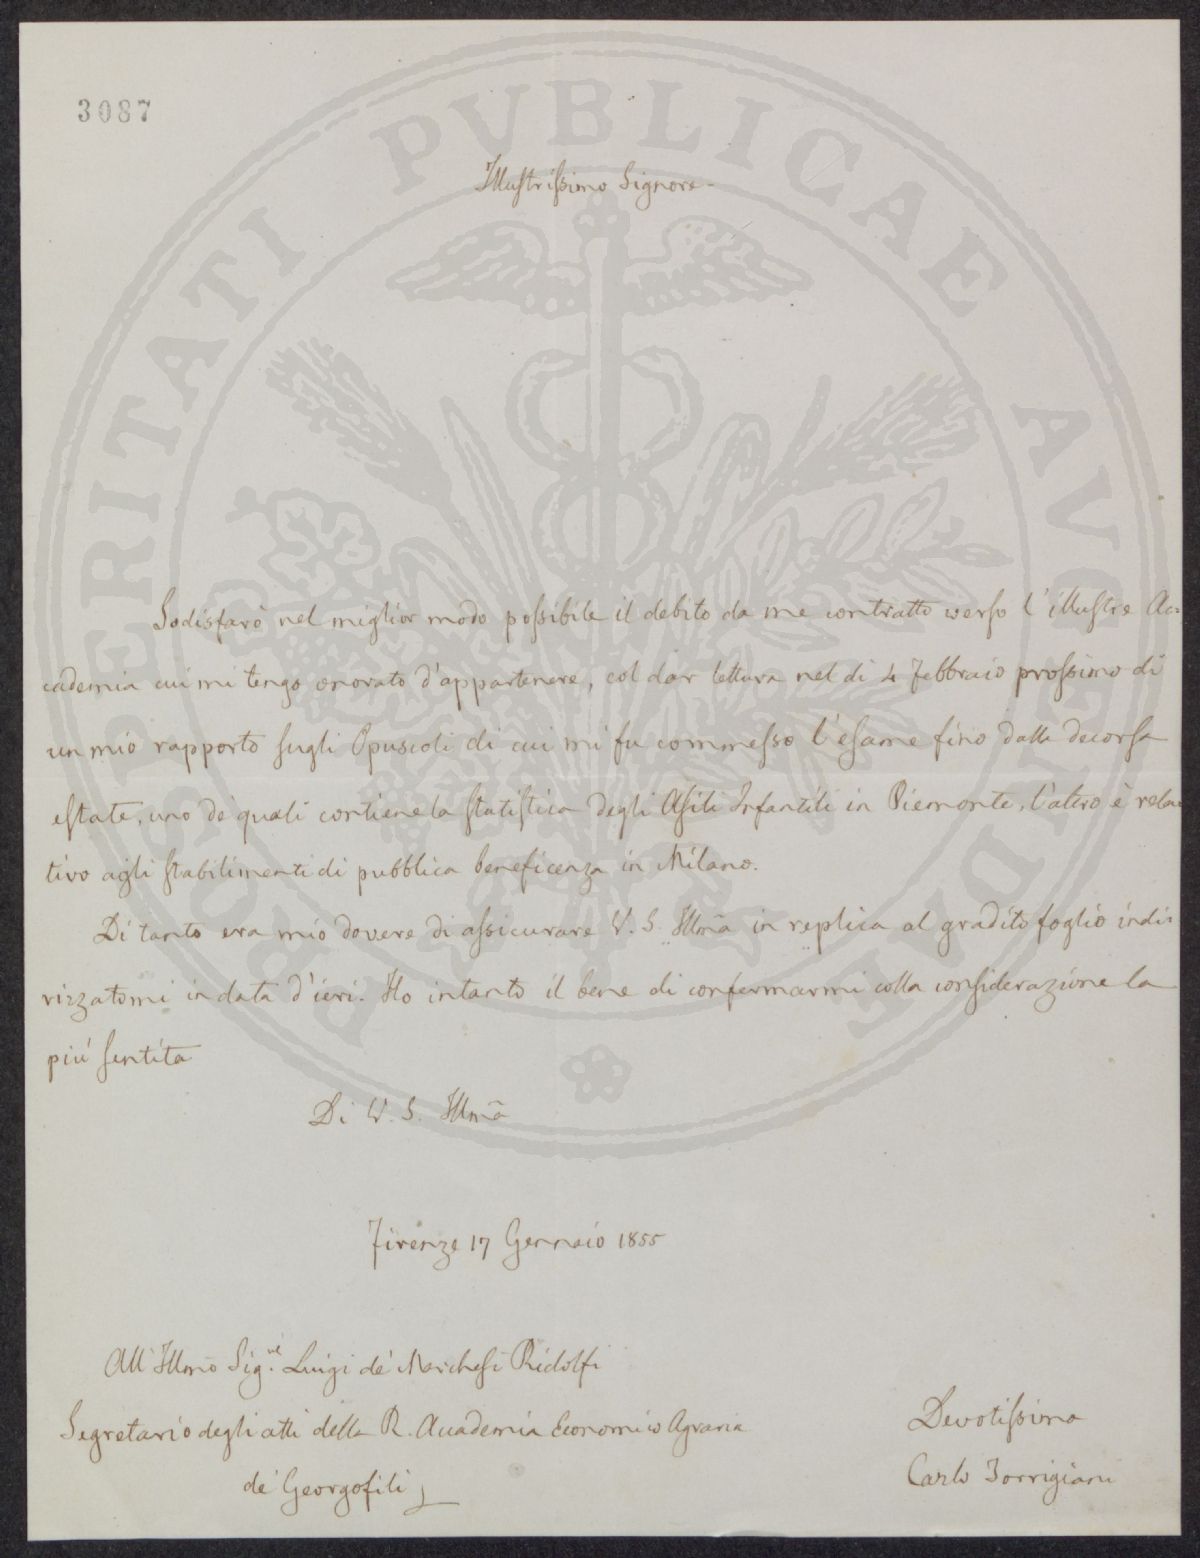 3087
PROSPERITATI PUBLICAE AVGENDAE
Illustrissimo Signore
Sodisfarò nel miglior modo possibile il debito da me contratto verso l'illustre Ac=
cademia cui mi tengo onorato d'appartenere, col dar lettura nel di 4 Febbraio prossimo di
un mio rapporto sugli Opuscoli di cui mi fu commesso l'esame fino dalla decorsa
estate, uno de quali contiene la statistica degli Asili Infantili in Piemonte, l'altro è rela=
tivo agli stabilimenti di pubblica beneficenza in Milano.
Di tanto era mio dovere di assicurare V. S. Illma in replica al gradito foglio indi=
rizzatomi in data d'ieri. Ho intanto il bene di confermarmi colla considerazione la
più sentita
Di V. S. Illma
Firenze 17 Gennaio 1855
All'Illmo Sig.re Luigi de' Marchesi Ridolfi
Segretario degli atti della R. Accademia Economico Agraria
de' Georgofili
Devotissimo
Carlo Torrigiani